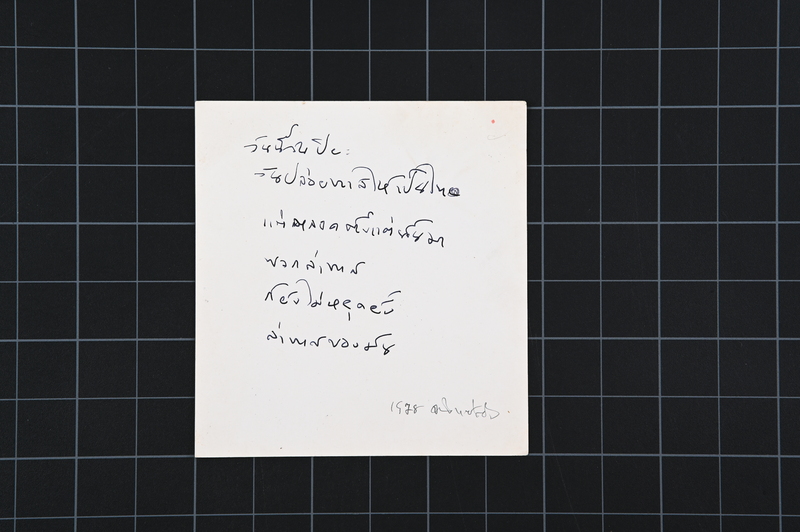 วันนี้วันปิยะ:
วันปล่อยทาสให้เป็นไท
แต่ตลอดตั้งแต่นั้นมา
พวกล่าทาส
ก็ยังไม่หยุดยั้ง
ล่าทาสของมัน
1978